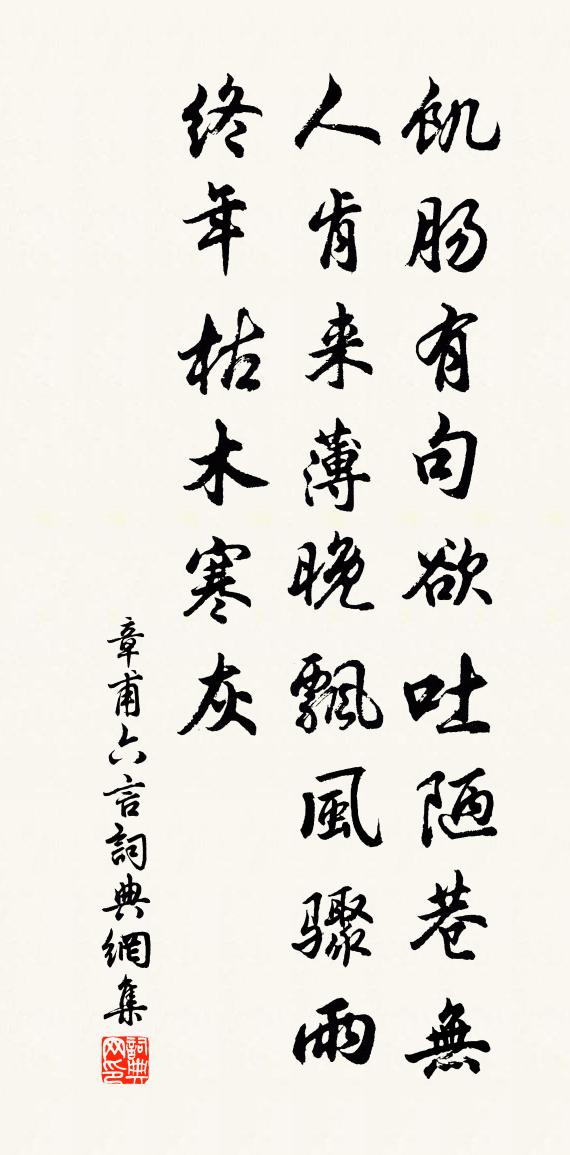 飢肠有句欲吐陋巷無
人肯来薄晚飄風骤雨
终年枯木寒灰
章甫六言詞典網集
詞典网印